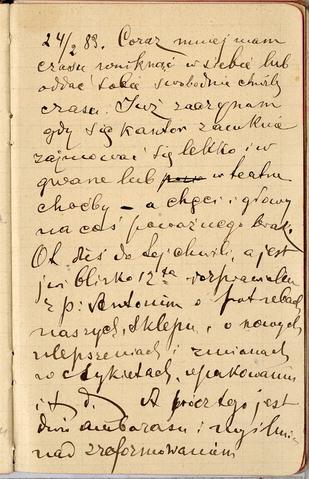 24/2 83. Coraz mniej mam
czasu wniknąć w siebie lub
oddać sobie swobodnie chwilę
czasu. Już zaczynam
gdy się kantor zamknie
zajmować się lekko i w
gwarze lub w teatru
choćby – a chęci i głowy
na coś poważnego brak.
Ot dziś do tej chwili, a jest
już blisko 12ta rozprawiałem
z p. Antonim o potrzebach
naszych, sklepu, i o nowych
ulepszeniach i zmianach
w etykietach, opakowaniu
i t. d. A prócz tego jest
dziś ambarasu i myślenia
nad zreformowaniem